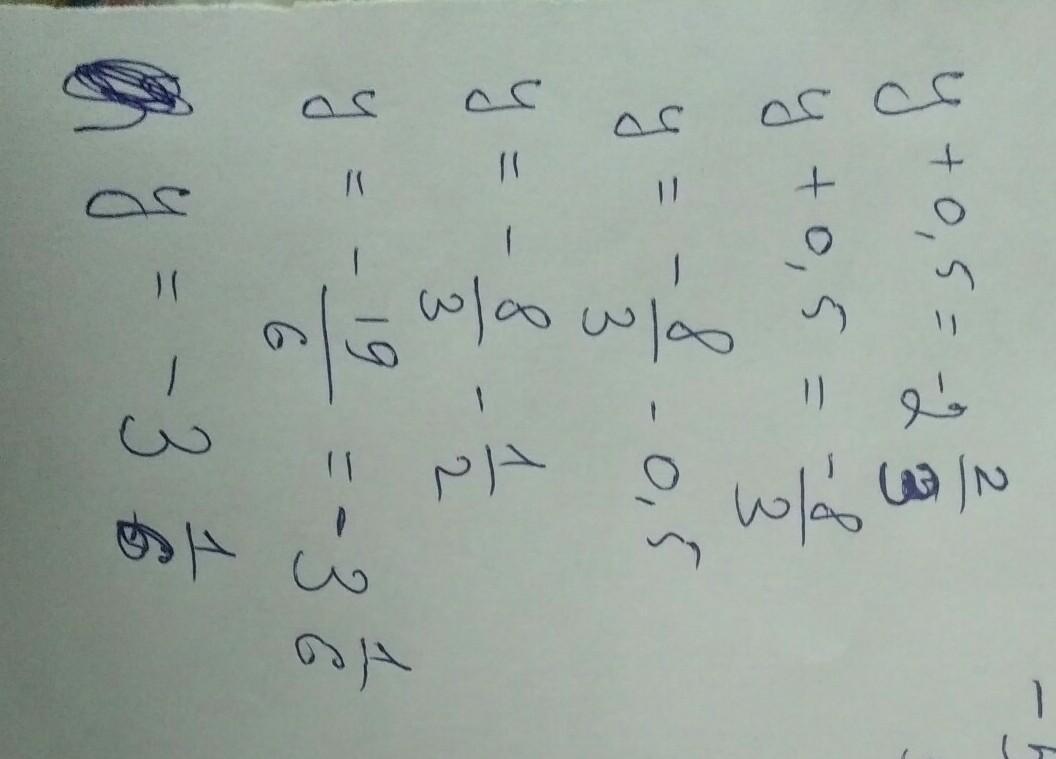 y + 0,5 = -2 2/3
y + 0,5 = -8/3
y = - 8/3 - 0,5
y = - 8/3 - 1/2
y = - 19/6 = -3 1/6
y = -3 1/6